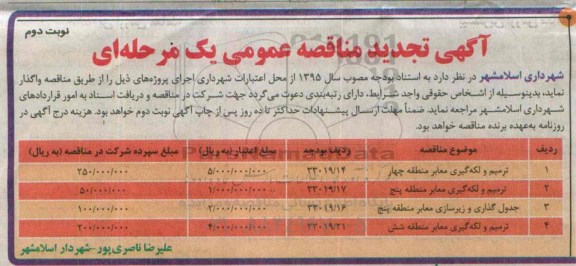 نوبت دوم
آگهی تجدید مناقصه عمومی یک مرحله‌ای
شهرداری اسلامشهر در نظر دارد به استناد بودجه مصوب سال ۱۳۹۵ از محل اعتبارات شهرداری اجرای پروژه‌های ذیل را از طریق مناقصه واگذار
نماید، بدینوسیله از اشخاص حقوقی واجد شرایط، دارای رتبه‌بندی دعوت می‌گردد جهت شرکت در مناقصه و دریافت اسناد به امور قراردادهای
شهرداری اسلامشهر مراجعه نماید. ضمناً مهلت ارسال پیشنهادات حداکثر تا ده روز پس از چاپ آگهی نوبت دوم خواهد بود. هزینه درج آگهی در
روزنامه به‌عهده برنده مناقصه خواهد بود.
ردیف موضوع مناقصه ردیف بودجه مبلغ اعتبار (به ریال) مبلغ سپرده شرکت در مناقصه (به ریال)
۱ ترمیم و لکه‌گیری معابر منطقه چهار ۳۳۰۱۹/۱۴ ۵/۰۰۰/۰۰۰/۰۰۰ ۲۵۰/۰۰۰/۰۰۰
۲ ترمیم و لکه‌گیری معابر منطقه پنج ۳۳۰۱۹/۱۷ ۱/۰۰۰/۰۰۰/۰۰۰ ۵۰/۰۰۰/۰۰۰
۳ جدول گذاری و زیرسازی معابر منطقه پنج ۳۳۰۱۹/۱۶ ۲/۰۰۰/۰۰۰/۰۰۰ ۱۰۰/۰۰۰/۰۰۰
۴ ترمیم و لکه‌گیری معابر منطقه شش ۳۳۰۱۹/۲۱ ۴/۰۰۰/۰۰۰/۰۰۰ ۲۰۰/۰۰۰/۰۰۰
علیرضا ناصری پور-شهردار اسلامشهر